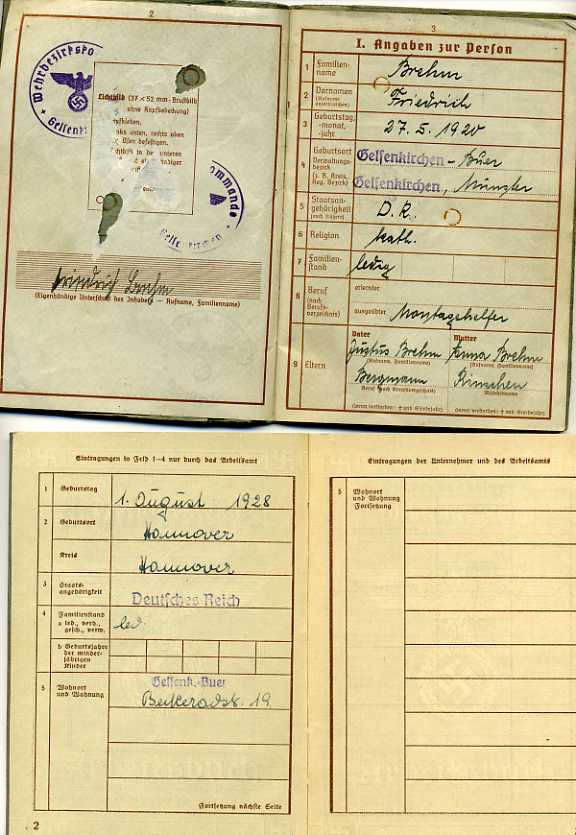 2
Wehrbezirksko
Gelsenki
Lichtbild (37 × 52 mm - Brustbild
ohne Kopfbedeckung)
aufkleben.
links unten, rechts oben
Ösen befestigen.
ommando
Gelsenkirchen
Friedrich Brehm
(Eigenhändige Unterschrift des Inhabers — Rufname, Familienname)
3
I. Angaben zur Person
1 Familienname Brehm
2 Vornamen Friedrich
3 Geburtstag, -monat, -jahr 27. 5. 1920
4 Geburtsort Gelsenkirchen - Buer
Verwaltungsbezirk
(z. B. Kreis, Reg. Bezirk) Gelsenkirchen, Münster
5 Staatsangehörigkeit D. R.
6 Religion kath.
7 Familienstand ledig
8 Beruf
(nach Berufsverzeichnis)
erlernter
ausgeübter Montagehelfer
9 Eltern
Vater Mutter
Justus Brehm Anna Brehm
(Rufname, Familienname) (Rufname, Familienname)
Bergmann
(Mädchenname)
Eintragungen in Feld 1–4 nur durch das Arbeitsamt
1 Geburtstag 1. August 1928
2 Geburtsort Hannover
Kreis Hannover
3 Staatsangehörigkeit Deutsches Reich
4 Familienstand led.
a led., verh., gesch., verw.
b Geburtsjahre der minderjährigen Kinder
5 Wohnort und Wohnung Gelsenk.-Buer
19
Fortsetzung nächste Seite
2
Eintragungen der Unternehmer und des Arbeitsamts
5 Wohnort und Wohnung
Fortsetzung